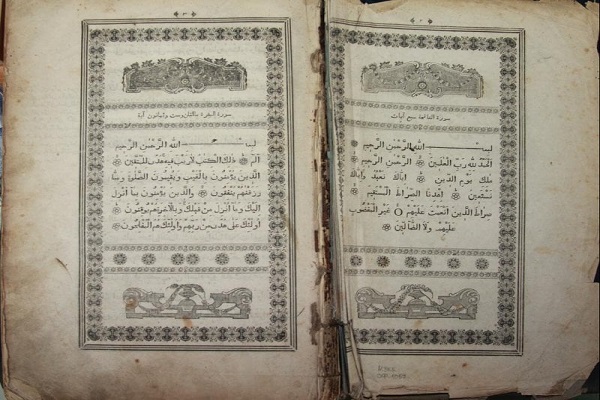 ٢
سورة الفاتحة سبع آيات
بسم الله الرحمن الرحيم
الحمد لله رب العلمين الرحمن الرحيم
ملك يوم الدين اياك نعبد واياك
نستعين اهدنا الصراط المستقيم
صراط الذين انعمت عليهم غير المغضوب
عليهم ولا الضالين
٣
سورة البقرة مائتان وست وثمانون آية
بسم الله الرحمن الرحيم
الم ذلك الكتب لا ريب فيه هدى للمتقين
الذين يؤمنون بالغيب ويقيمون الصلوة ومما
رزقنهم ينفقون والذين يؤمنون بما انزل
اليك وما انزل من قبلك وبالآخرة هم يوقنون
اولئك على هدى من ربهم واولئك هم المفلحون